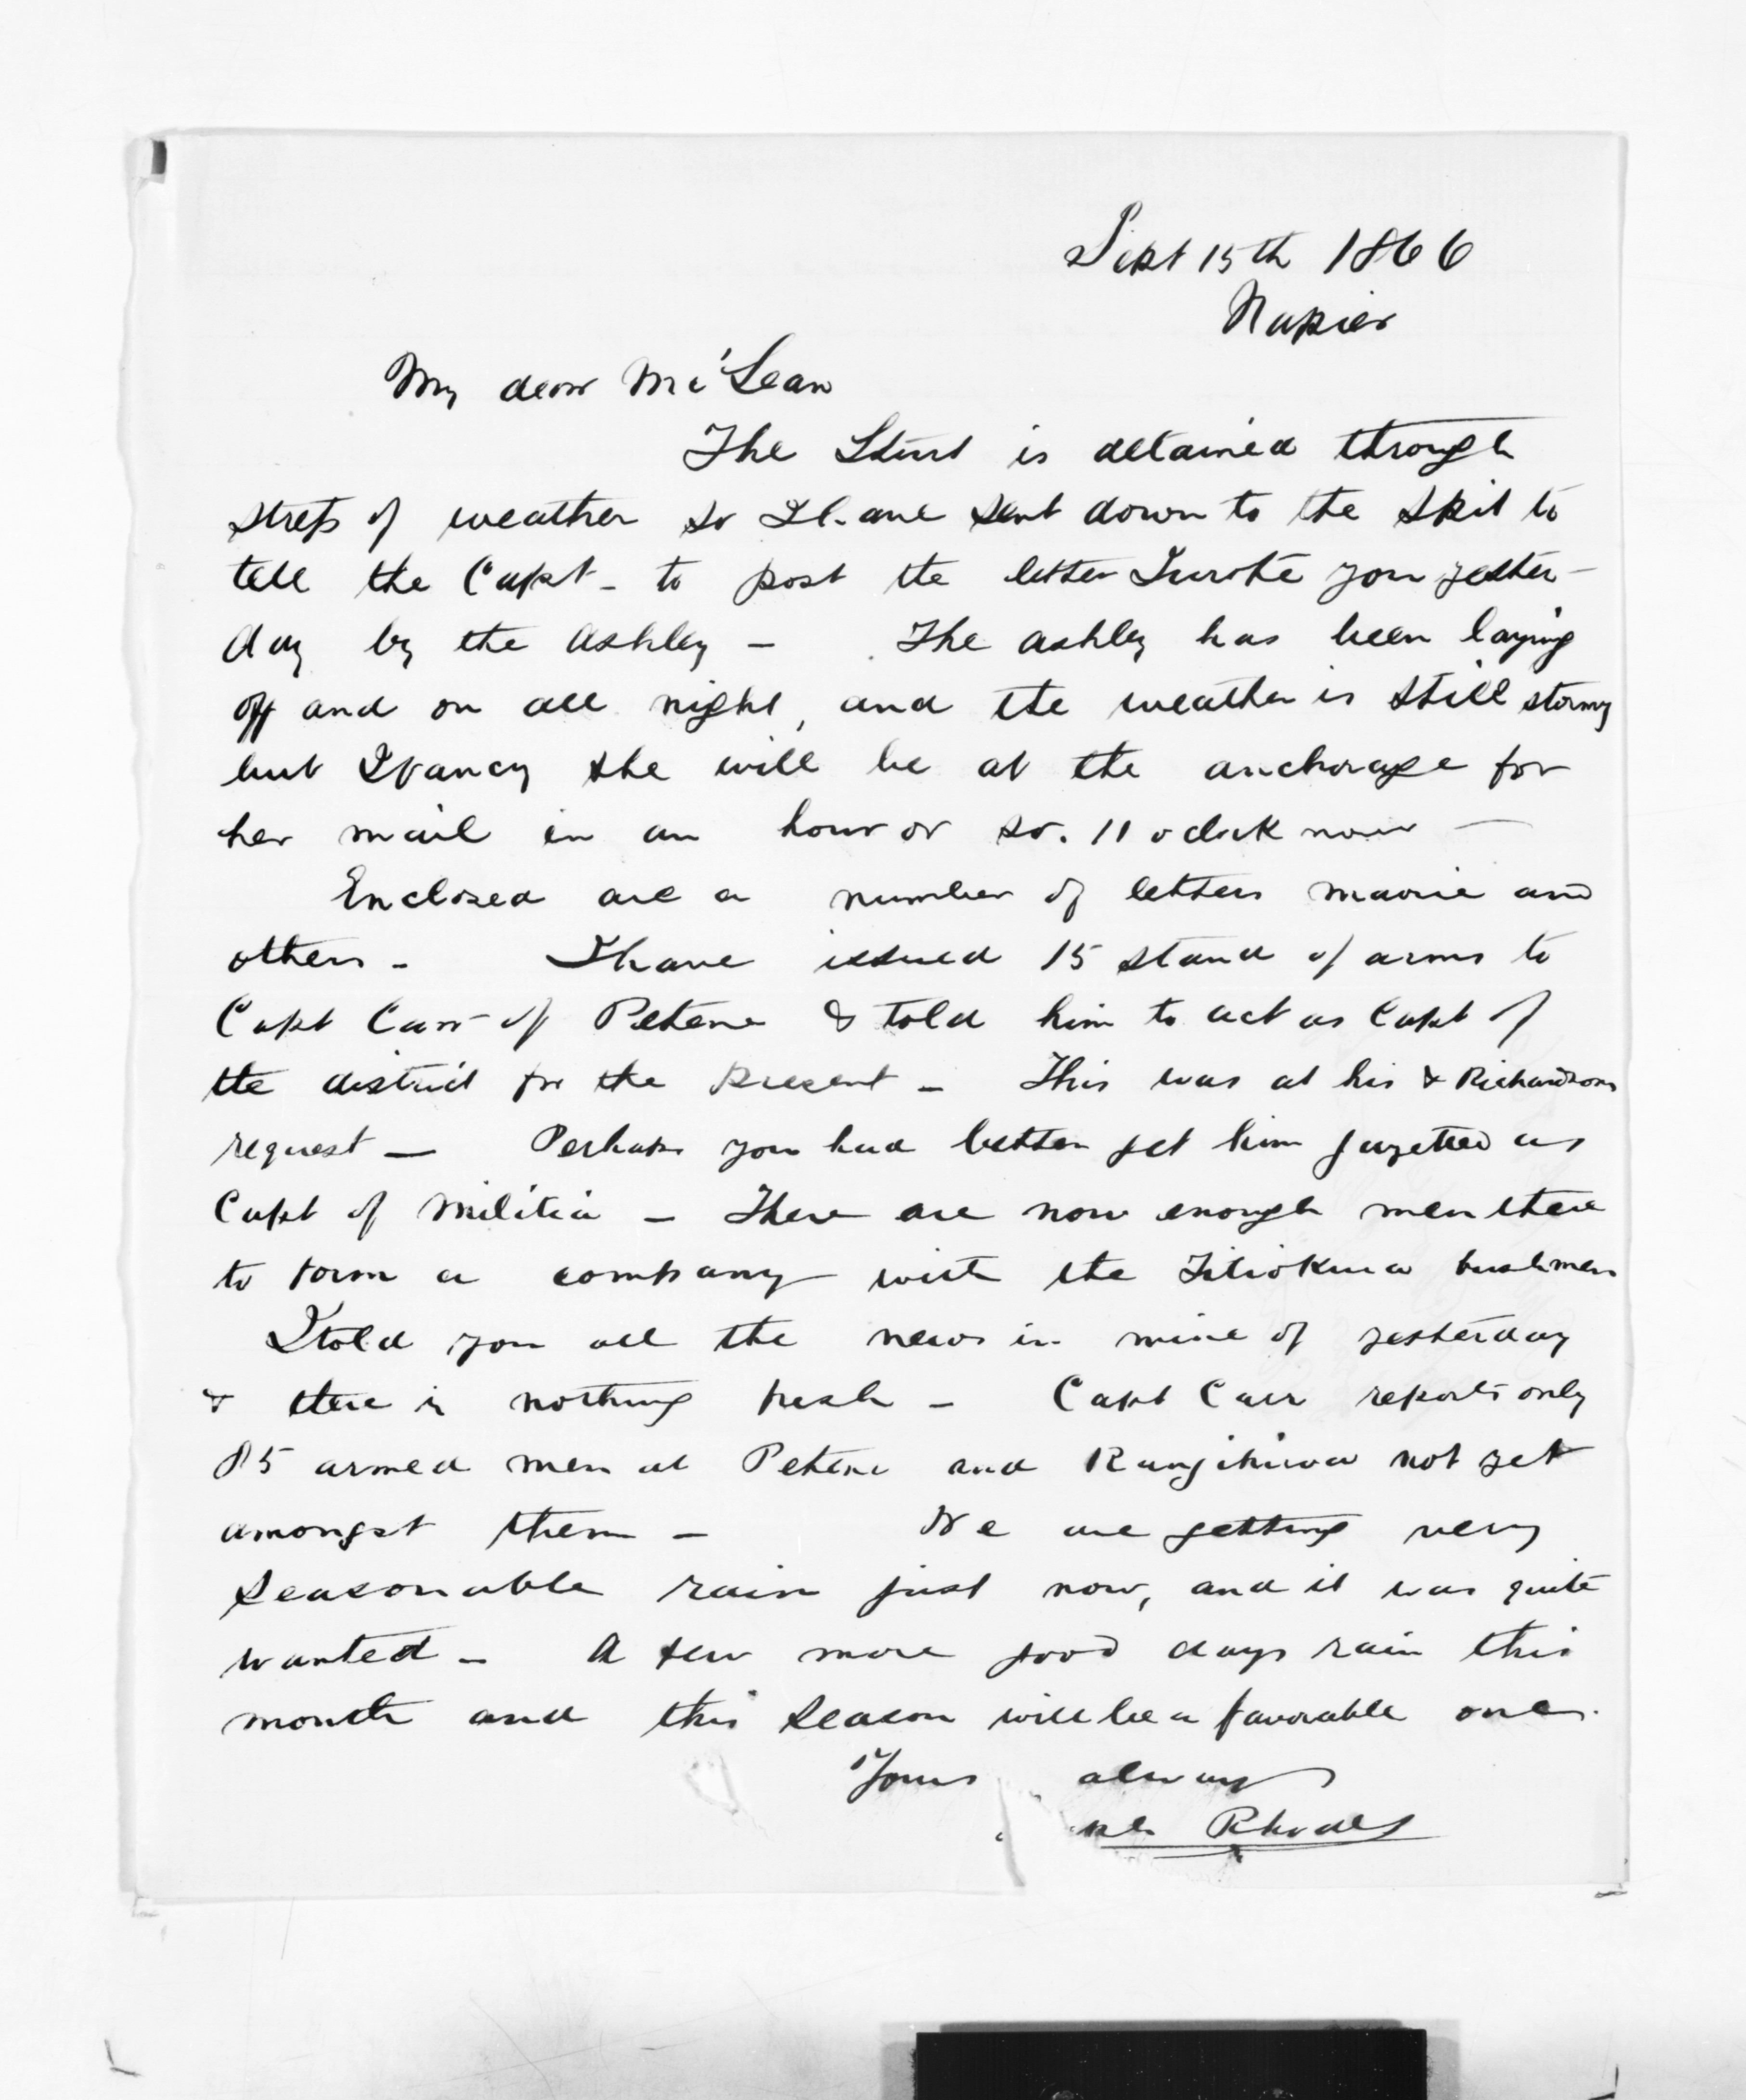 Sept 15th 1866
Napier
My dear McLean
The Sturt is detained through
stress of weather so I have sent down to the Spit to
tell the Capt - to post the letter I wrote you yester-
day by the Ashley - The Ashley has been laying
off and on all night, and the weather is still stormy
but I fancy she will be at the anchorage for
her mail in an hour or so. 11 oclock now -
Enclosed are a number of letters maorie and
others - I have issued 15 stand of arms to
Capt Carr of Petane & told him to act as Capt of
the district for the present - This was at his & Richardsons
request - Perhaps you had better get him gazetted as
Capt of Militia - There are now enough men there
to form a company with the Titiokura bushmen
I told you all the news in mine of yesterday
& there is nothing fresh - Capt Carr reports only
85 armed men at Petane and Rangihiroa not yet
amongst them - We are getting very
seasonable rain just now, and it was quite
wanted - A few more good days rain this
month and this season will be a favorable one.
Yours always
Rhodes